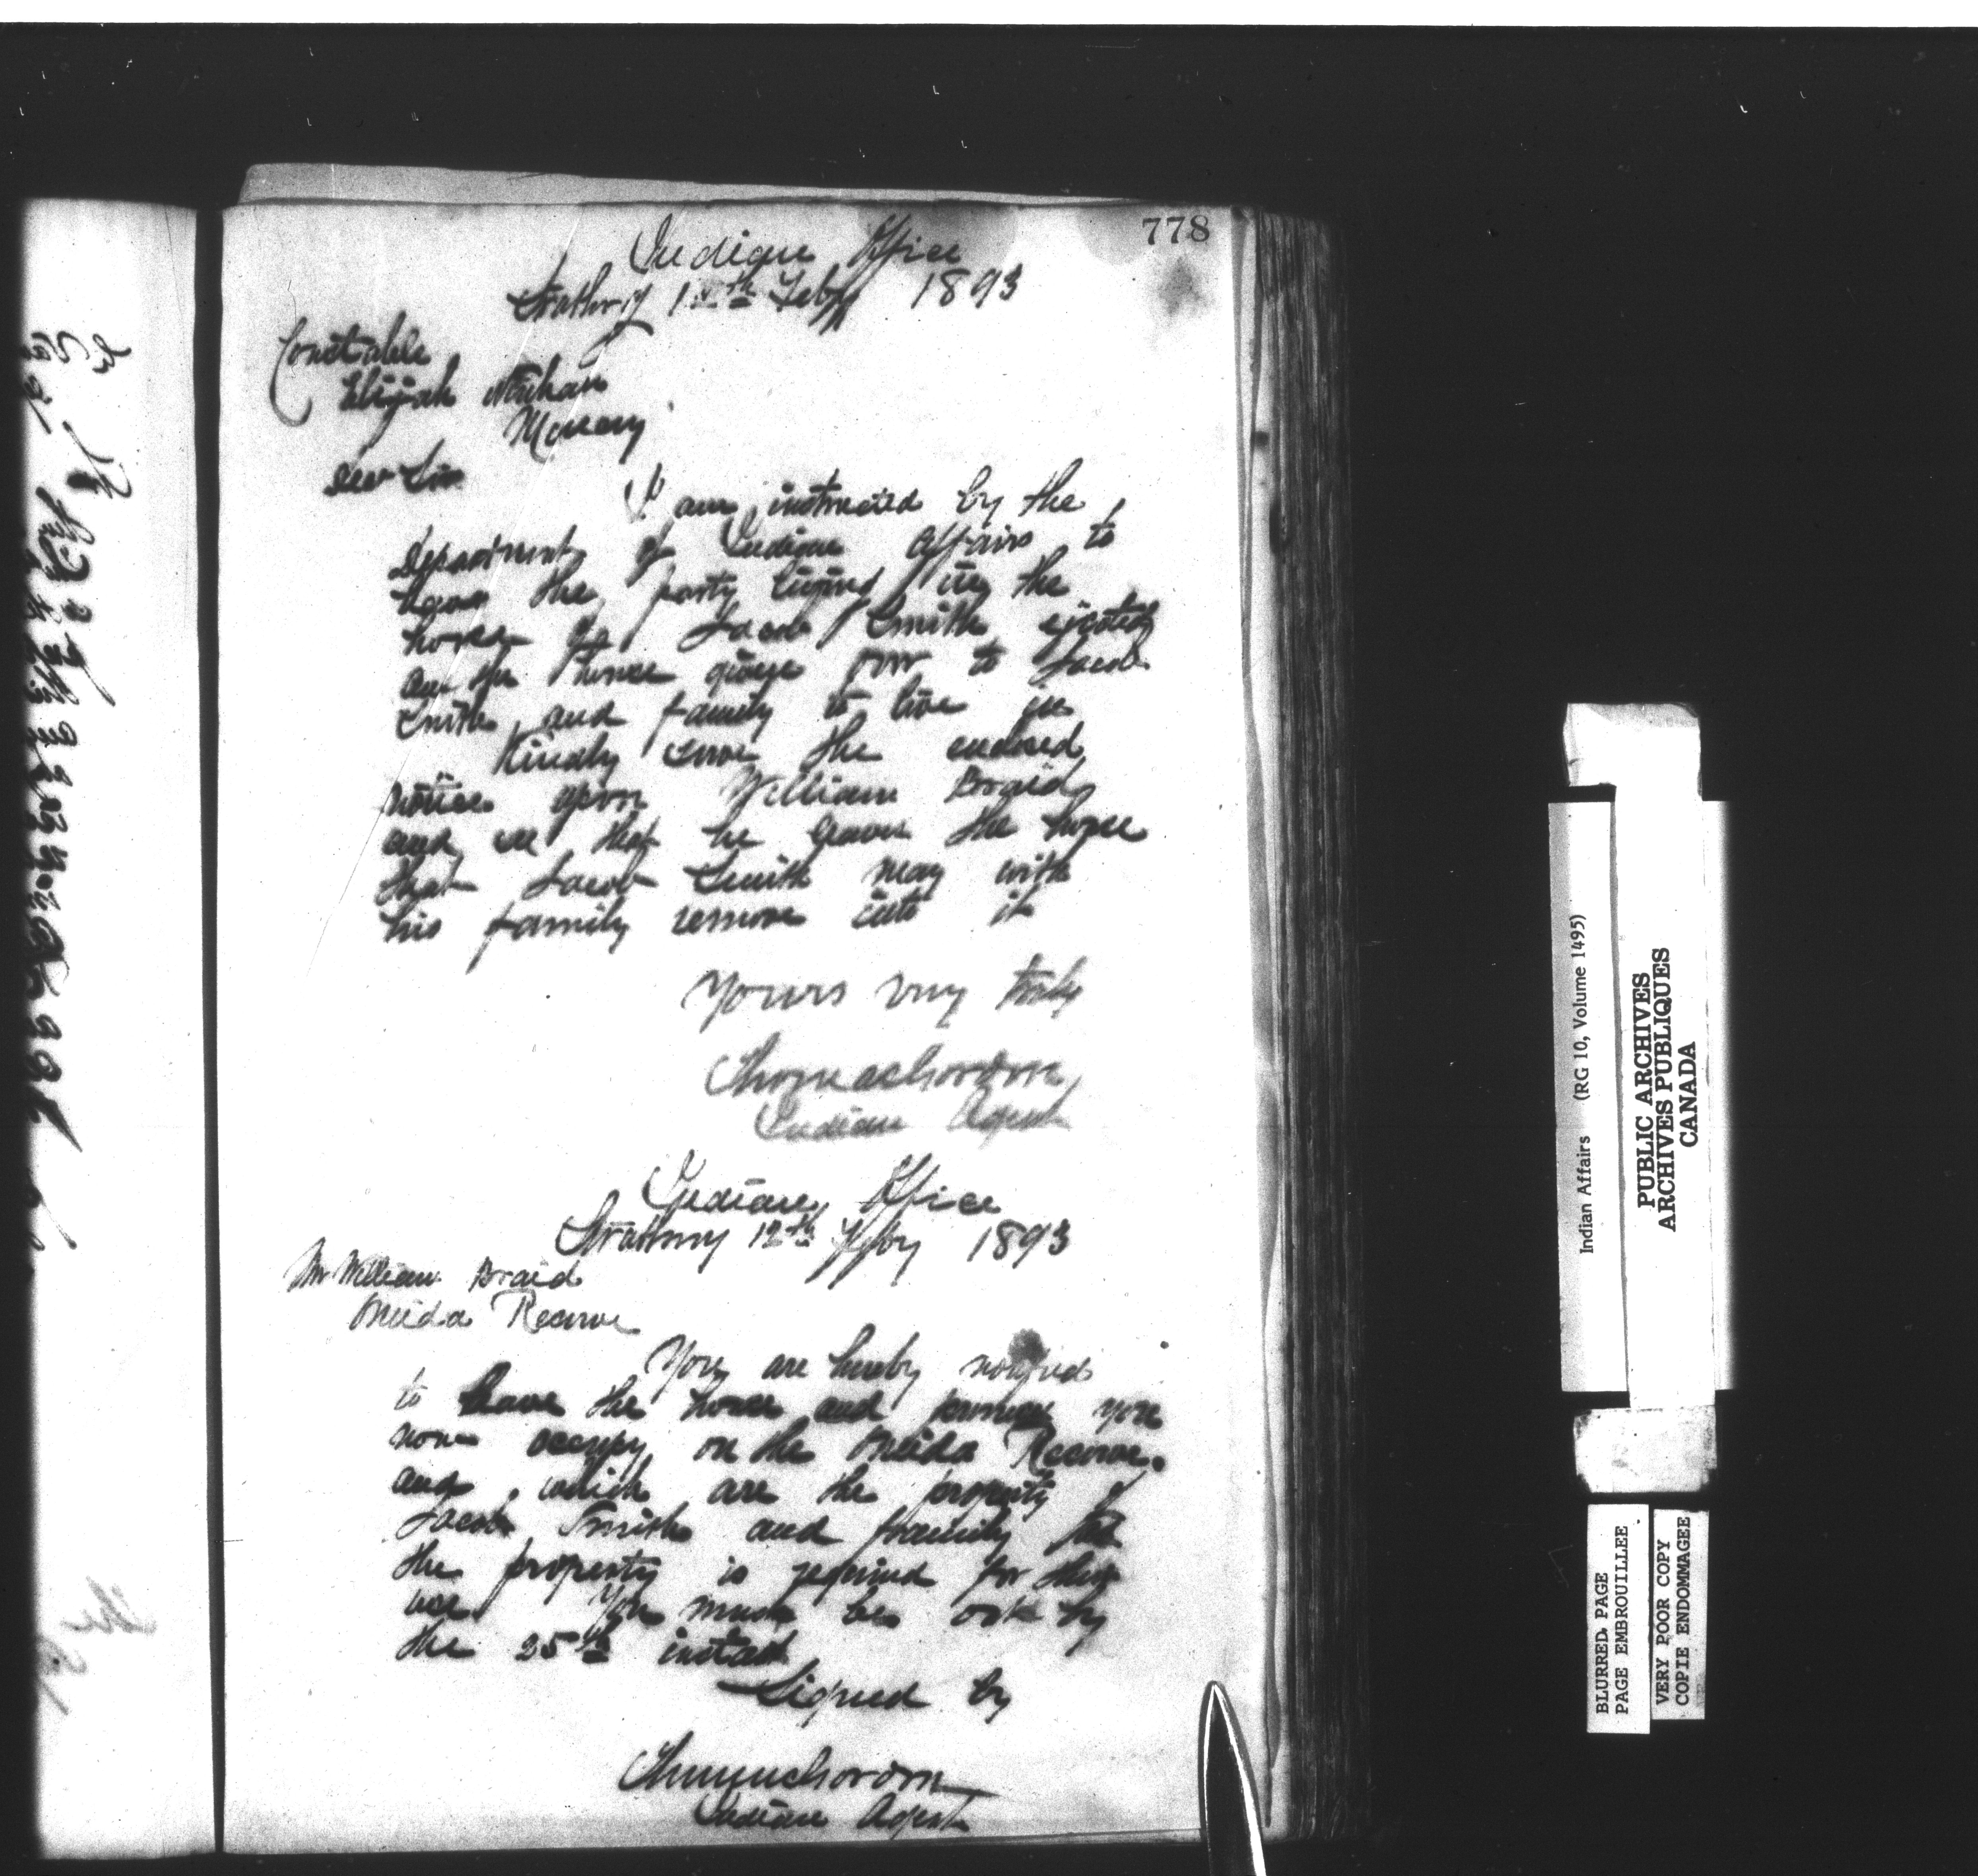 778
Indian Office
Strathroy 12th Feby 1893
Constable
Elijah
Muncey
Dear Sir
I am instructed by the
Department of Indian Affairs to
have the party living in the
house of Jacob Smith ejected
and the house given over to Jacob
Smith and family to live in
Kindly serve the enclosed
notice upon William Braid
and see that he leaves the house
that Jacob Smith may with
his family remove into it
Yours very truly
Thomas Gordon
Indian Agent
Indian Office
Strathroy 12th Feby 1893
Mr William Braid
Oneida Reserve
You are hereby notified
to leave the house and premises you
now occupy on the Oneida Reserve
and which are the property of
Jacob Smith and family
the property is required for their
use. You must be out by
the 25th instant
Signed by
Thomas Gordon
Indian Agent
Indian Affairs (RG 10, Volume 1495)
PUBLIC ARCHIVES
ARCHIVES PUBLIQUES
CANADA
BLURRED PAGE
PAGE EMBROUILLEE
VERY POOR COPY
COPIE ENDOMMAGEE